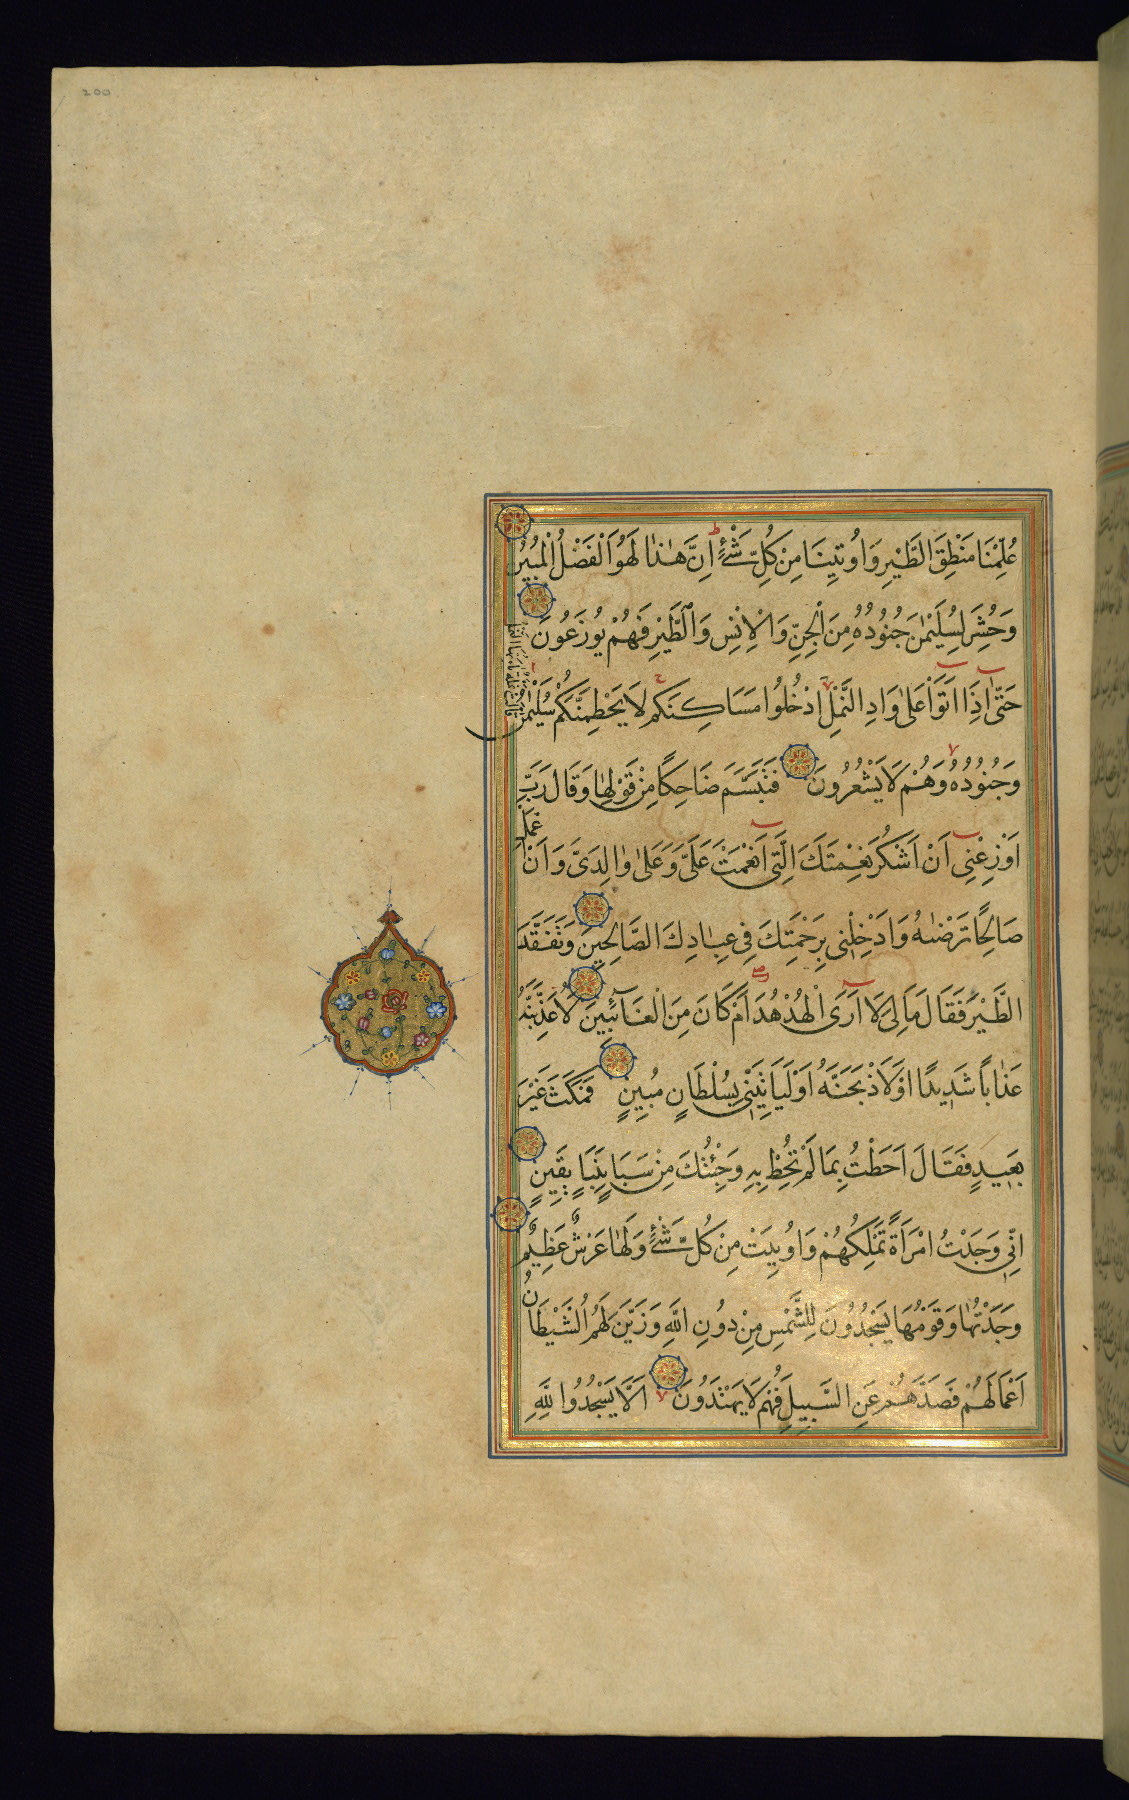 200
عُلِّمْنَا مَنْطِقَ الطَّيْرِ وَاُوتِينَا مِنْ كُلِّ شَىْءٍ اِنَّ هٰذَا لَهُوَ الْفَضْلُ الْمُبِينُ
وَحُشِرَ لِسُلَيْمٰنَ جُنُودُهُ مِنَ الْجِنِّ وَالْاِنْسِ وَالطَّيْرِ فَهُمْ يُوزَعُونَ
حَتّٰى اِذَا اَتَوْا عَلٰى وَادِ النَّمْلِ ادْخُلُوا مَسَاكِنَكُمْ لَا يَحْطِمَنَّكُمْ سُلَيْمٰنُ
قَالَتْ نَمْلَةٌ يَا اَيُّهَا النَّمْلُ
وَجُنُودُهُ وَهُمْ لَا يَشْعُرُونَ فَتَبَسَّمَ ضَاحِكًا مِنْ قَوْلِهَا وَقَالَ رَبِّ
اَوْزِعْنِى اَنْ اَشْكُرَ نِعْمَتَكَ الَّتِى اَنْعَمْتَ عَلَىَّ وَعَلٰى وَالِدَىَّ وَاَنْ اَعْمَلَ
صَالِحًا تَرْضٰيهُ وَاَدْخِلْنِى بِرَحْمَتِكَ فِى عِبَادِكَ الصَّالِحِينَ وَتَفَقَّدَ
الطَّيْرَ فَقَالَ مَا لِىَ لَا اَرَى الْهُدْهُدَ اَمْ كَانَ مِنَ الْغَآئِبِينَ لَاُعَذِّبَنَّهُ
عَذَابًا شَدِيدًا اَوْ لَاَذْبَحَنَّهُ اَوْ لَيَاْتِيَنِّى بِسُلْطَانٍ مُبِينٍ فَمَكَثَ غَيْرَ
بَعِيدٍ فَقَالَ اَحَطْتُ بِمَا لَمْ تُحِطْ بِهِ وَجِئْتُكَ مِنْ سَبَاٍ بِنَبَاٍ يَقِينٍ
اِنِّى وَجَدْتُ امْرَاَةً تَمْلِكُهُمْ وَاُوتِيَتْ مِنْ كُلِّ شَىْءٍ وَلَهَا عَرْشٌ عَظِيمٌ
وَجَدْتُهَا وَقَوْمَهَا يَسْجُدُونَ لِلشَّمْسِ مِنْ دُونِ اللّٰهِ وَزَيَّنَ لَهُمُ الشَّيْطَانُ
اَعْمَالَهُمْ فَصَدَّهُمْ عَنِ السَّبِيلِ فَهُمْ لَا يَهْتَدُونَ اَلَّا يَسْجُدُوا لِلّٰهِ